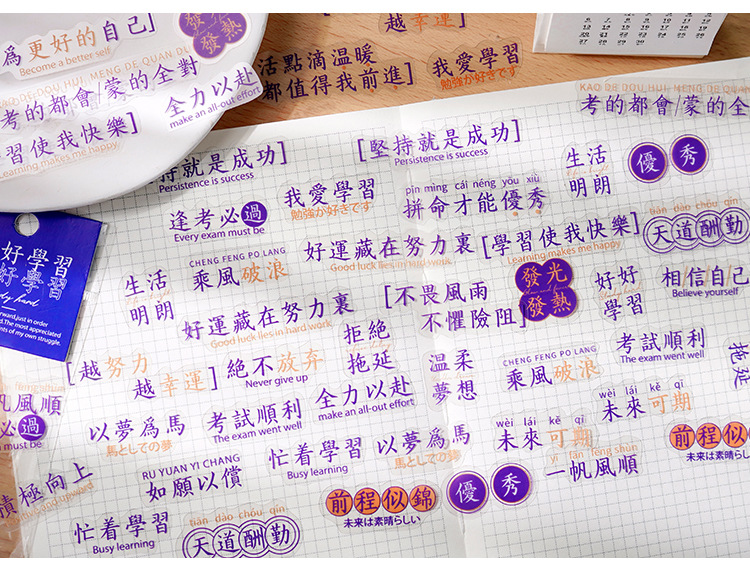 為更好的自己]
Become a better self
發光
發熱
越幸運]
KAO DE DOU HUI, MENG DE QUAN DU
考的都會/蒙的全對
全力以赴
make an all-out effort
學習使我快樂]
Learning makes me happy
活點滴溫暖
都值得我前進]
我愛學習
勉強が好きです
6 7 8 9 10 11 12
13 14 15 16 17 18 19
20 21 22 23 24 25 26
27 28 29 30
考的都會/蒙的全
持就是成功]
Persistence is success
[堅持就是成功]
Persistence is success
生活
明朗
優秀
逢考必過
Every exam must be
我愛學習
勉強が好きです
pīn mìng cái néng yōu xiù
拼命才能優秀
好學習
好學習
生活
明朗
CHENG FENG PO LANG
乘風破浪
好運藏在努力裏
Good luck lies in hard work
[學習使我快樂]
Learning makes me happy
tiān dào chóu qín
天道酬勤
好運藏在努力裏
Good luck lies in hard work
[不畏風雨
不懼險阻]
發光
發熱
好好
學習
相信自己
Believe yourself
[越努力
越幸運]
絕不放弃
Never give up
拒絶
拖延
溫柔
夢想
CHENG FENG PO LANG
乘風破浪
考試順利
The exam went well
拖延
帆風順
必過
must be
以夢爲馬
馬としての夢
考試順利
The exam went well
全力以赴
make an all-out effort
wèi lái kě qī
未來可期
積極向上
RU YUAN YI CHANG
如願以償
忙着學習
Busy learning
以夢爲馬
馬としての夢
wèi lái kě qī
未來可期
yì fān fēng shùn
一帆風順
前程似
未来は素晴らし
忙着學習
Busy learning
tiān dào chóu qín
天道酬勤
前程似錦
未来は素晴らしい
優秀